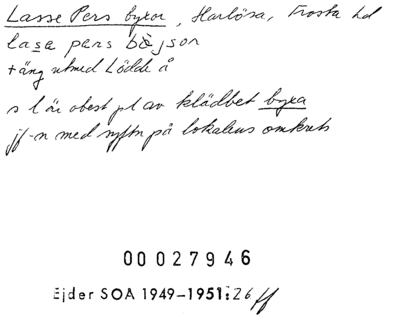 Lasse Pers byxor, Harlösa, Frosta hd
lase pers bòjson
+ äng utmed Lödde å
s l är obest pl av klädbet byxa
jf-n med syftn på lokalens omkrets
00027946
Ejder SOA 1949–1951:26 ff